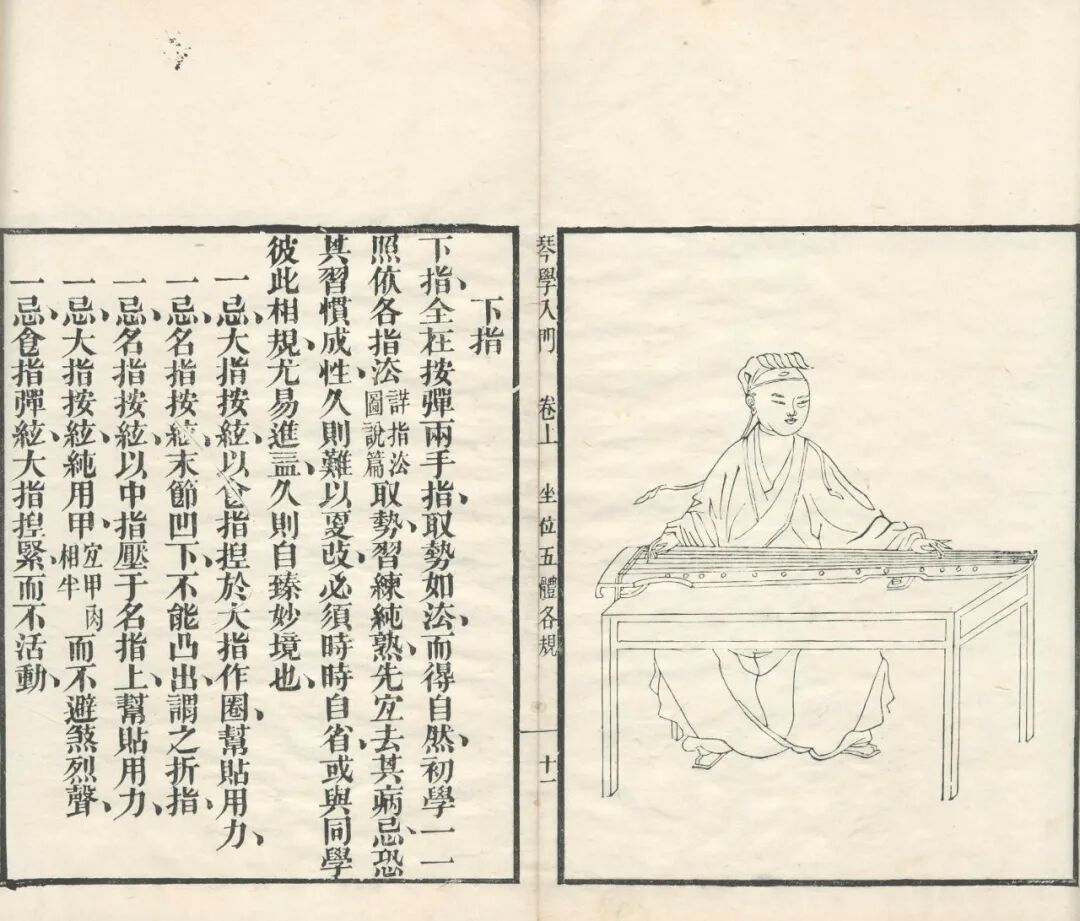 琴學入門　卷上　坐位五體各規　十一
下指
下指、全在按彈兩手指、取勢如法、而得自然、初學一一
照依各指法詳指法圖說篇取勢、習練純熟、先宜去其病忌、恐
其習慣成性、久則難以更改、必須時時自省、或與同學
彼此相規、尤易進益、久則自臻妙境也、
一忌、大指按絃、以食指揑於大指作圈、幫貼用力、
一忌、名指按絃、末節凹下、不能凸出、謂之折指、
一忌、名指按絃、以中指壓于名指上、幫貼用力、
一忌、大指按絃、純用甲、宜甲肉相半而不避煞烈聲、
一忌、食指彈絃、大指揑緊、而不活動、